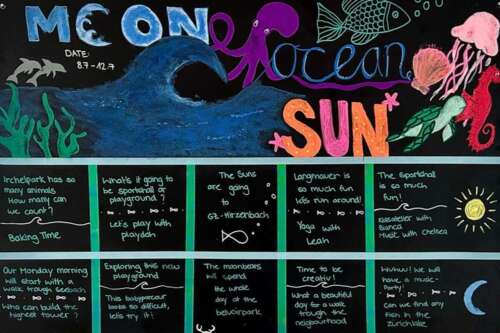 MOON
ocean
SUN
DATE:
8.7-12.7
Irchelpark has so
many animals
How many can
we count?
Baking Time
What's it going to
be sportshall or
playground?
Let's play with
playdoh
The Suns
are going
to
GZ-Hirzenbach
Langmauer is
so much fun
let's run around!
Yoga with
Leah
The Sportshall
is so much
fun!
with
Bianca
Music with Chelsea
Our Monday morning
will start with a
walk trough seebach
Who can build the
highest tower?
Exploring this new
playground
This
looks so difficult,
let's try it!
The moonbears
will spend
the whole
day at the
Time to be
creativ!
What a beautiful
day for a walk
trough the
neighborhood
Wuhuu! We will
have a music-
Party!
can we find any
fish in the
Zürichlake